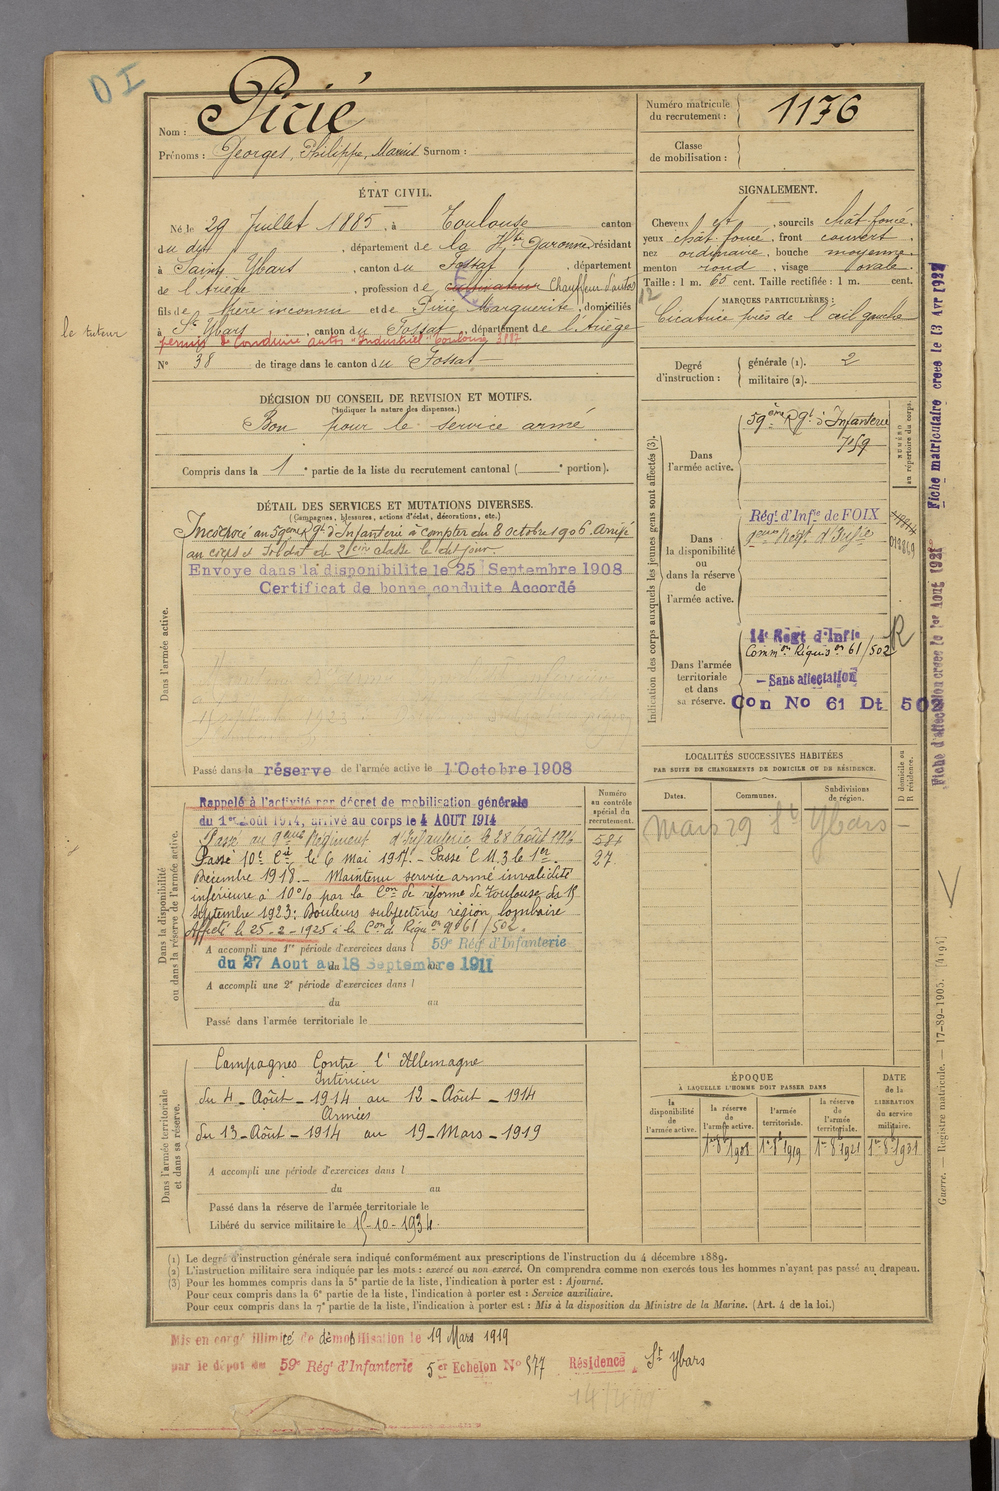 DI
Nom : Pirié
Prénoms : Georges, Philippe, Marius Surnom :
Numéro matricule du recrutement : 1176
Classe de mobilisation :
ÉTAT CIVIL.
Né le 29 Juillet 1885, à Toulouse canton
du dit, département de la Hte Garonne, résidant
à Saint Ybars, canton du Fossat, département
de l'Ariège, profession de cultivateur Chauffeur d'autos
fils de père inconnu et de Pirié Marguerite, domiciliés
le tuteur
à St Ybars, canton du Fossat, département de l'Ariège
permis de Conduire autos "Industriel" Toulouse 3887
N° 38 de tirage dans le canton du Fossat
SIGNALEMENT.
Cheveux ch, sourcils chât foncé.
yeux chât foncé, front couvert.
nez ordinaire, bouche moyenne.
menton rond, visage ovale.
Taille : 1 m. 65 cent. Taille rectifiée : 1 m. cent.
12
MARQUES PARTICULIÈRES :
Cicatrice près de l'œil gauche
Degré d'instruction : générale (1). 2
militaire (2).
DÉCISION DU CONSEIL DE REVISION ET MOTIFS.
(Indiquer la nature des dispenses.)
Bon pour le service armé
Compris dans la 1e partie de la liste du recrutement cantonal ( e portion).
DÉTAIL DES SERVICES ET MUTATIONS DIVERSES.
(Campagnes, blessures, actions d'éclat, décorations, etc.)
Dans l'armée active.
Incorporé au 59ème Rgt d'Infanterie à compter du 8 octobre 1906. Arrivé
au corps et soldat de 2ème classe le dit jour.
Envoyé dans la disponibilité le 25 Septembre 1908
Certificat de bonne conduite Accordé
Passé dans la réserve de l'armée active le 1 Octobre 1908
Indication des corps auxquels les jeunes gens sont affectés (3).
NUMÉRO au répertoire du corps.
Dans l'armée active.
59ème Rgt d'Infanterie
7059
Dans la disponibilité ou dans la réserve de l'armée active.
Régt d'Infie de FOIX
9ème Régt d'Infie
013869
Dans l'armée territoriale et dans sa réserve.
14e Régt d'Infie
Common Réquison 61/502
R
— Sans affectation
Con No 61 Dt 502
Fiche matriculaire créée le 13 Avr 192
Fiche d'affectation créée le 1er Août 192
LOCALITÉS SUCCESSIVES HABITÉES
PAR SUITE DE CHANGEMENTS DE DOMICILE OU DE RÉSIDENCE.
Dates. Communes. Subdivisions de région. D domicile ou R résidence.
Mars 29 St Ybars —
Dans la disponibilité ou dans la réserve de l'armée active.
Numéro au contrôle spécial du recrutement.
Rappelé à l'activité par décret de mobilisation générale
du 1er Août 1914, arrivé au corps le 4 AOUT 1914
Passé au 9ème Régiment d'Infanterie le 28 août 1916 584
Passé 10e Cie le 6 Mai 1917. — Passé C.M.3 le 1er 27
Décembre 1918. — Maintenu service armé invalidité
inférieure à 10% par la Con de réforme de Toulouse du 15
septembre 1923 : Douleurs subjectives région lombaire
Affecté le 25-2-1925 à la Con de Réquon n° 61/502.
A accompli une 1re période d'exercices dans l 59e Régt d'Infanterie
du 27 Aout au 18 Septembre 1911
A accompli une 2e période d'exercices dans l
du au
Passé dans l'armée territoriale le
Dans l'armée territoriale et dans sa réserve.
Campagnes Contre l'Allemagne
Intérieur
du 4 - Août - 1914 au 12 - Août - 1914
Armées
du 13 - Août - 1914 au 19 - Mars - 1919
A accompli une période d'exercices dans l
du au
Passé dans la réserve de l'armée territoriale le
Libéré du service militaire le 15-10-1934.
ÉPOQUE
À LAQUELLE L'HOMME DOIT PASSER DANS
DATE de la LIBÉRATION du service militaire.
la disponibilité de l'armée active. la réserve de l'armée active. l'armée territoriale. la réserve de l'armée territoriale.
1er 8bre 1908 1er 8bre 1919 1er 8bre 1921 1er 8bre 1931
Guerre. — Registre matricule. — 17-89-1905. [4194]
(1) Le degré d'instruction générale sera indiqué conformément aux prescriptions de l'instruction du 4 décembre 1889.
(2) L'instruction militaire sera indiquée par les mots : exercé ou non exercé. On comprendra comme non exercés tous les hommes n'ayant pas passé au drapeau.
(3) Pour les hommes compris dans la 5e partie de la liste, l'indication à porter est : Ajourné.
Pour ceux compris dans la 6e partie de la liste, l'indication à porter est : Service auxiliaire.
Pour ceux compris dans la 7e partie de la liste, l'indication à porter est : Mis à la disposition du Ministre de la Marine. (Art. 4 de la loi.)
Mis en congé illimité de démobilisation le 19 Mars 1919
par le dépôt du 59e Régt d'Infanterie 5er Echelon N° 577 Résidence St Ybars